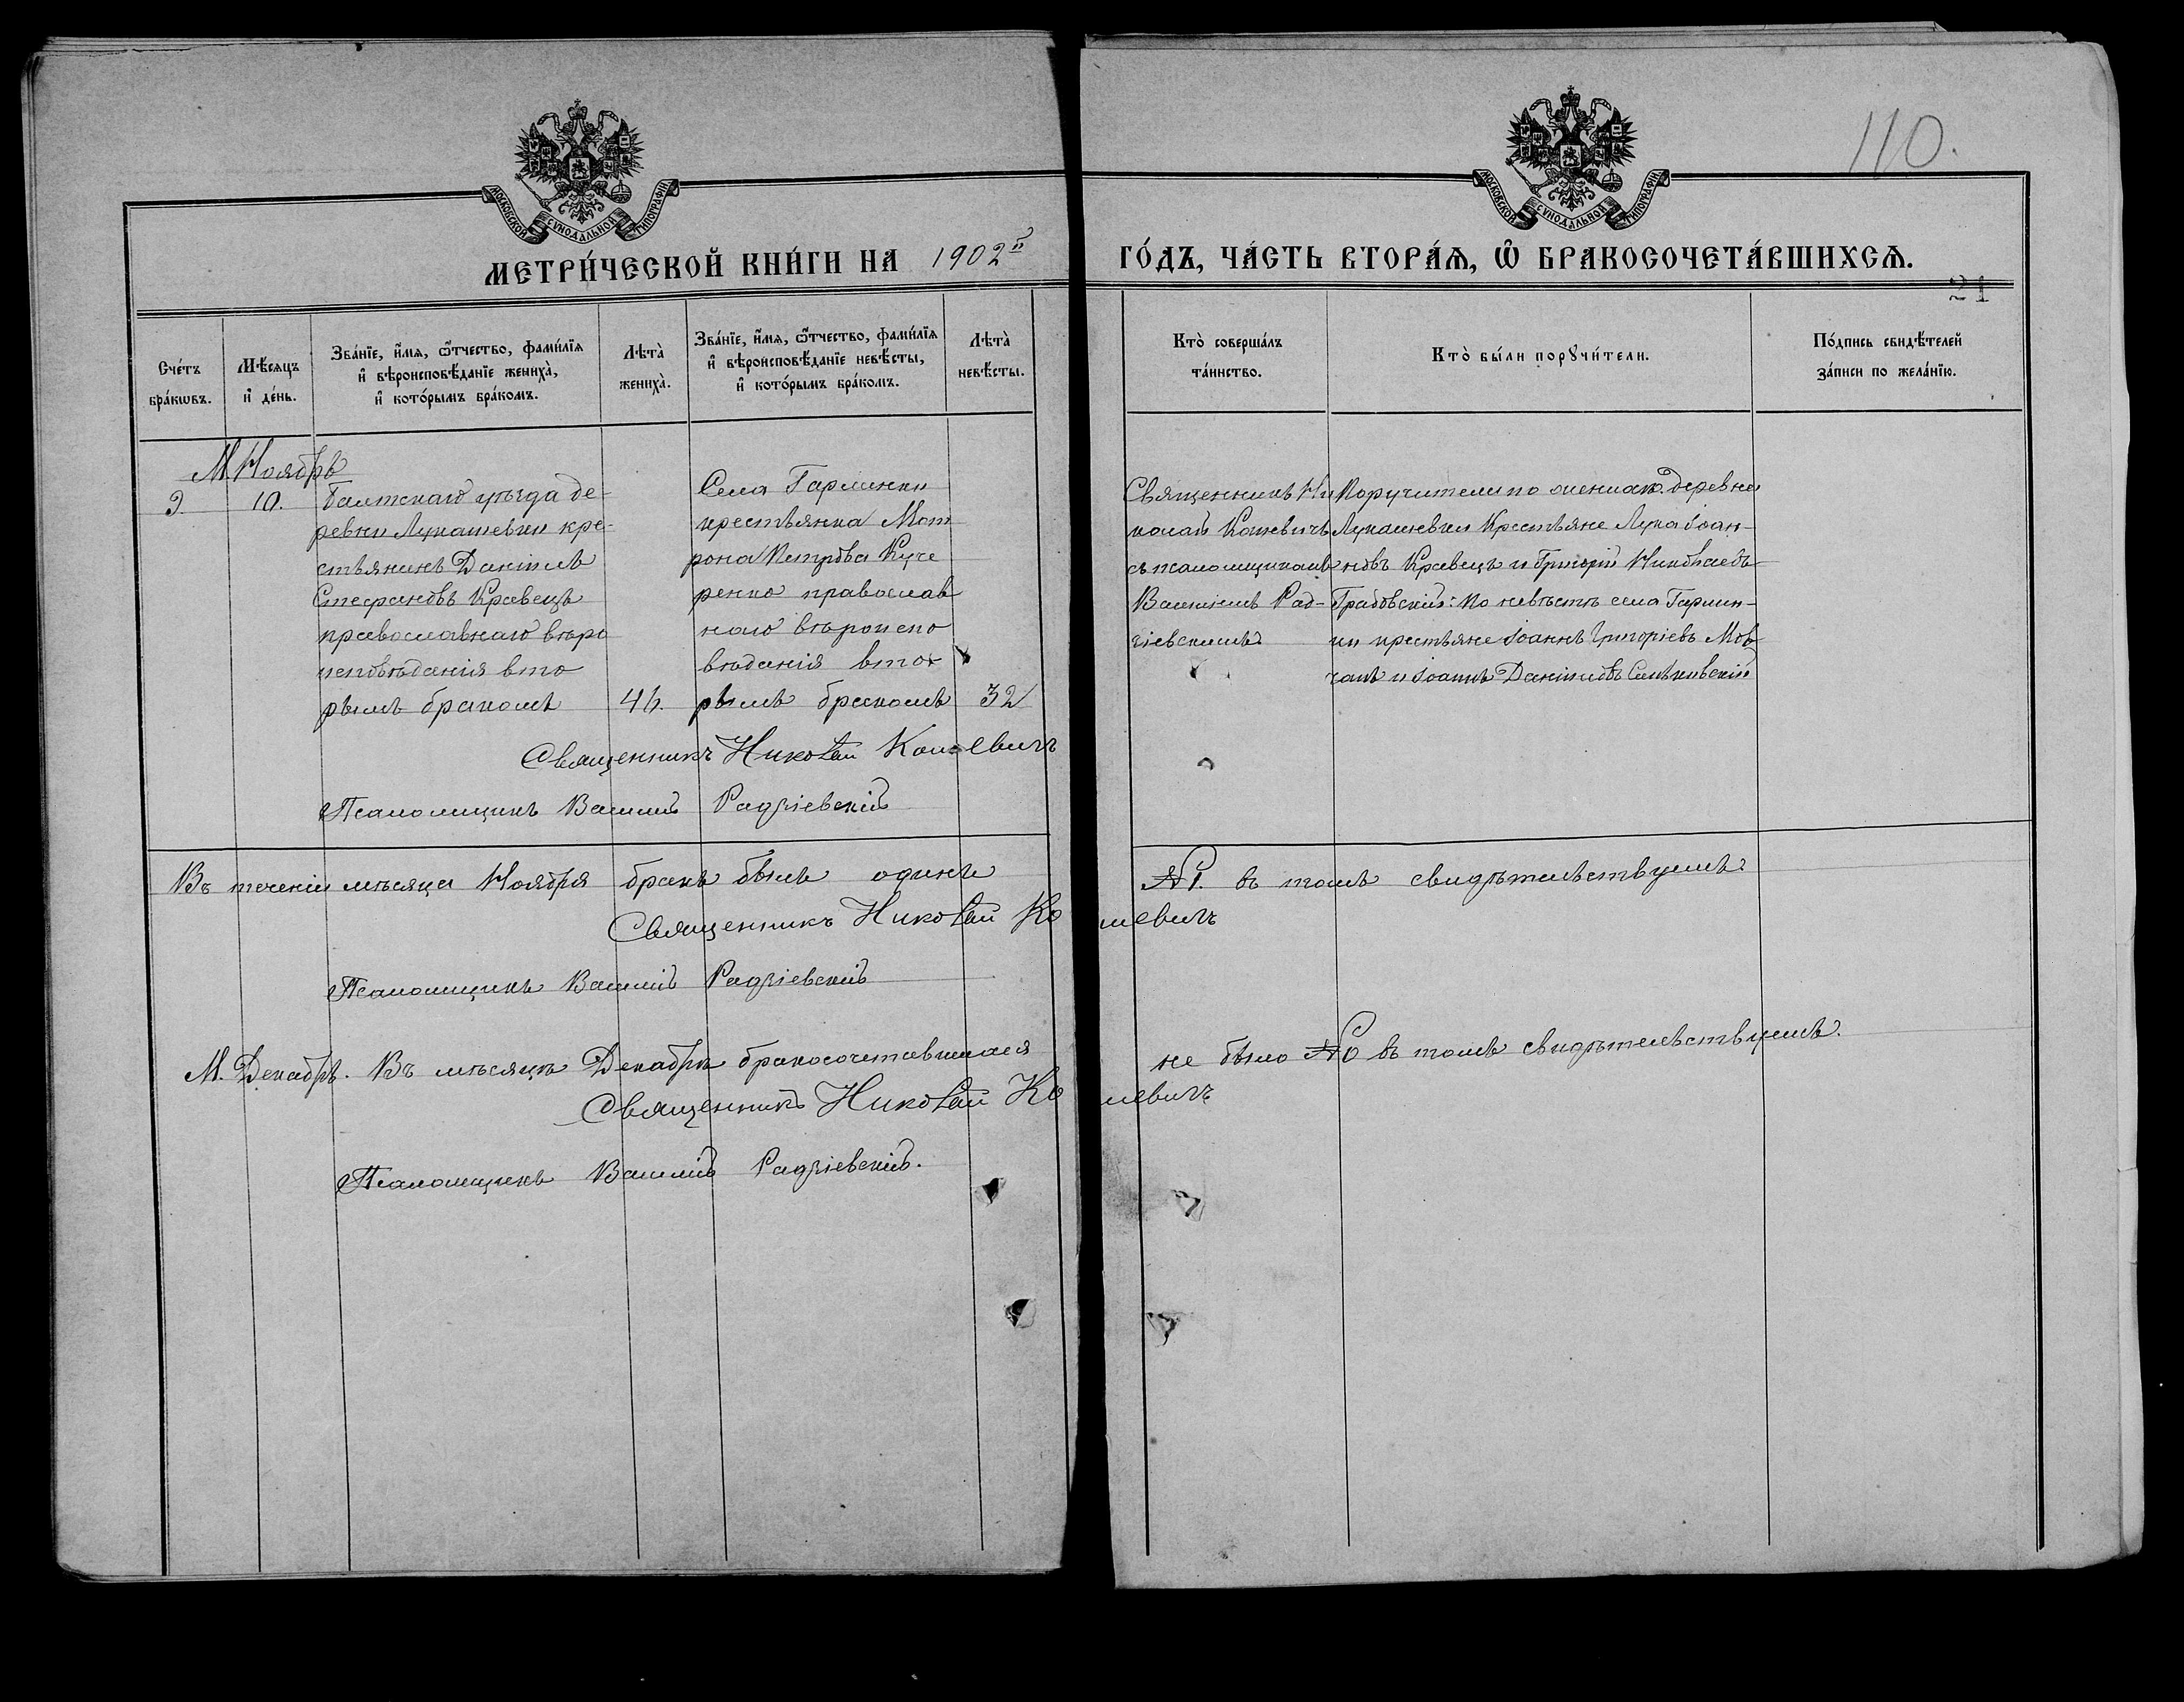 110.
МОСКОВСКОЙ СѴНОДАЛЬНОЙ ТИПОГРАФІИ
МОСКОВСКОЙ СѴНОДАЛЬНОЙ ТИПОГРАФІИ
МЕТРИ́ЧЕСКОЙ КНИ́ГИ НА 1902й ГО́ДЪ, ЧА́СТЬ ВТОРА́Ѧ, Ѽ БРАКОСОЧЕТА́ВШИХСѦ.
21
Сче́тъ бра́кѡвъ.
Мѣ́сяцъ и҆ де́нь.
Зва́нїе, и҆́мѧ, ѻ҆́тчество, фами́лїѧ и҆ вѣроисповѣ́данїе жениха̀, и҆ кото́рымъ бра́комъ.
Лѣта̀ жениха̀.
Зва́нїе, и҆́мѧ, ѻ҆́тчество, фами́лїѧ и҆ вѣроисповѣ́данїе невѣ́сты, и҆ кото́рымъ бра́комъ.
Лѣта̀ невѣ́сты.
Кто̀ соверша́лъ та́инство.
Кто̀ бы́ли порꙋчи́тели.
По́дпись свидѣ́телей за́писи по жела́нїю.
М. Ноябрь
9. 10.
Балтскаго уѣзда де-
ревни Лукашевки кре-
стьянинъ Даніилъ
Стефановъ Кравецъ
православнаго вѣро
исповѣданія вто
рымъ бракомъ 46.
Села Гармики
крестьянка Мат
рона Петрова Куче
ренко православ
наго вѣроиспо
вѣданія вто
рымъ бракомъ 32
Священникъ Ни
колай Кошевичъ
съ псаломщикомъ
Василіемъ Рад-
зіевскимъ
Поручители по женихѣ: деревни
Лукашевки Крестьяне Лука Іоан-
новъ Кравецъ и Григорій Николаевъ
Грабовскій: По невѣстѣ села
крестьяне Іоаннъ Григоріевъ Мов-
чанъ и Іоаннъ Даніиловъ
Священникъ Николай Кошевичъ
Псаломщикъ Василій Радзіевскій
Въ теченіи мѣсяца Ноября бракъ былъ одинъ №1. въ томъ свидѣтельствуемъ:
Священникъ Николай Кошевичъ
Псаломщикъ Василій Радзіевскій
М. Декабрь. Въ мѣсяцѣ Декабрѣ бракосочетавшихся не было №0 въ томъ свидѣтельствуемъ.
Священникъ Николай Кошевичъ
Псаломщикъ Василій Радзіевскій.